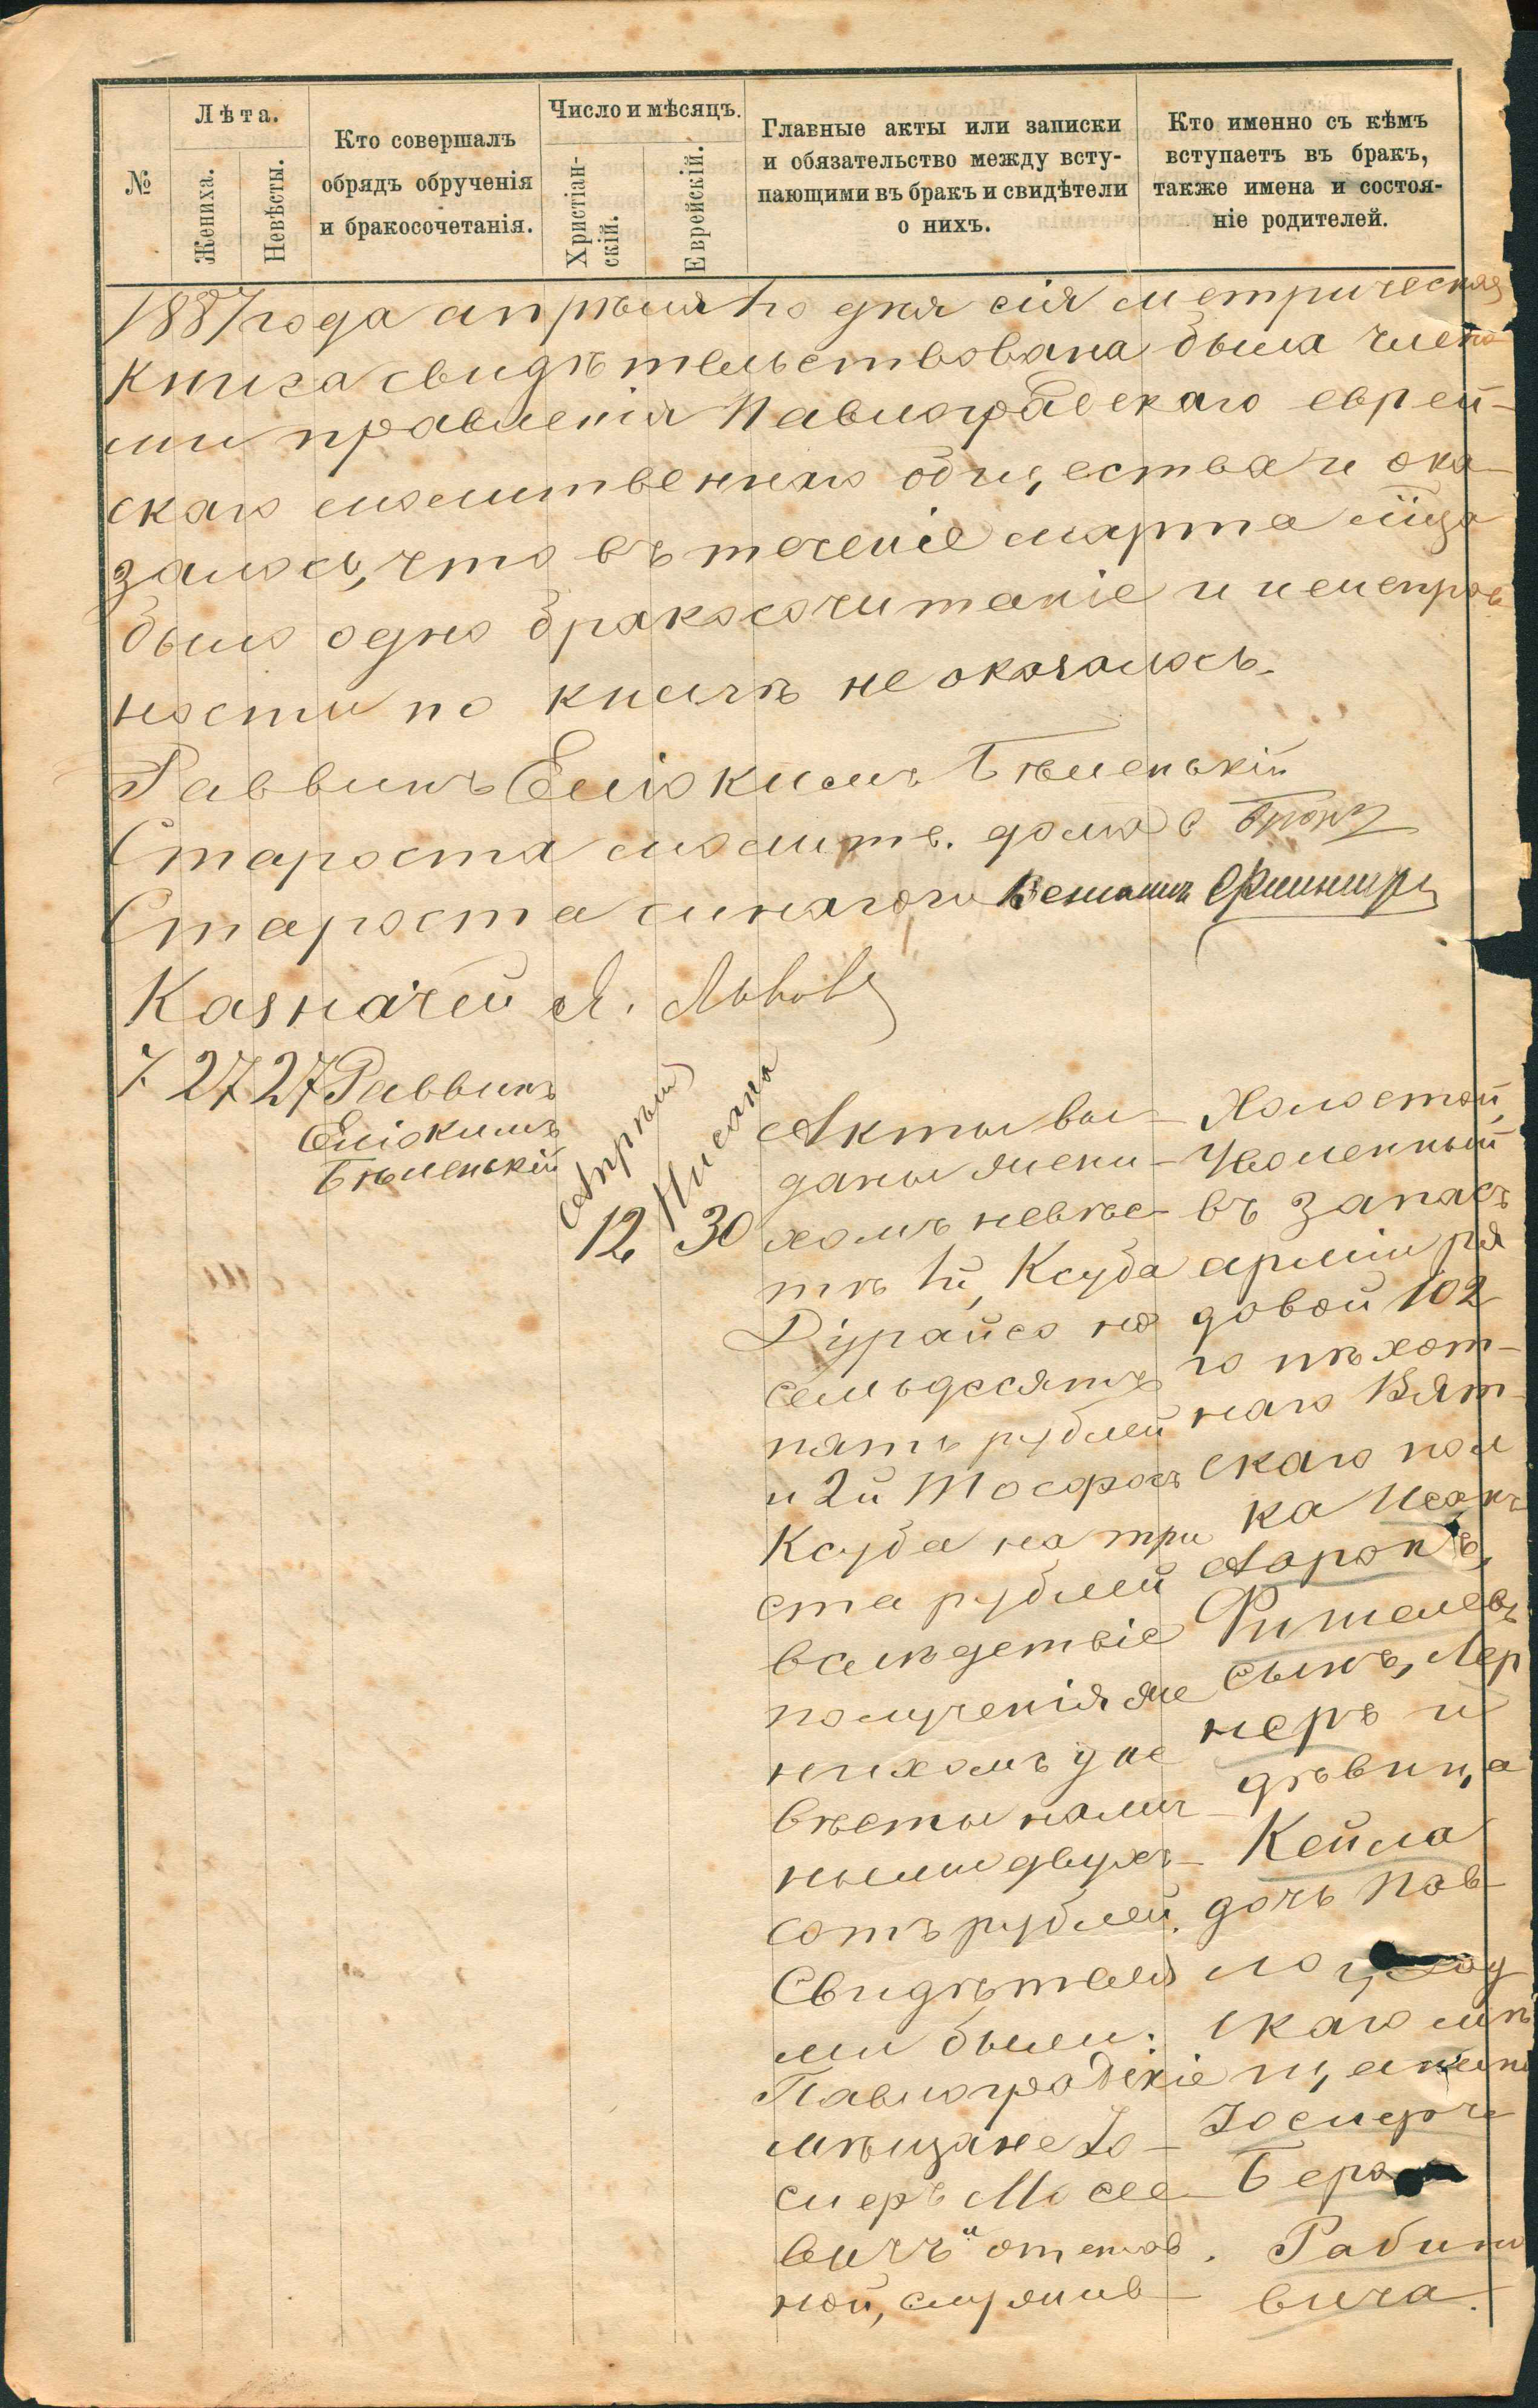 №
Лѣта.
Жениха.
Невѣсты.
Кто совершалъ
обрядъ обрученія
и бракосочетанія.
Число и мѣсяцъ.
Христіан-
скій.
Еврейскій.
Главные акты или записки
и обязательство между всту-
пающими въ бракъ и свидѣтели
о нихъ.
Кто именно съ кѣмъ
вступаетъ въ бракъ,
также имена и состоя-
ніе родителей.
1887 года апрѣля 1го дня сія метрическая
книга свидѣтельствована была члена
ми правленія Павлоградскаго еврей-
скаго молитвеннаго общества и ока
залось, что въ теченіе марта мца
было одно бракосочитаніе и неисправ
ности по книгѣ не оказалось.
Раввинъ Еліокимъ Бѣленькій
Староста молитв. дома
Староста синагоги
Казначей Я. Львовъ
7. 27 27 Раввинъ
Еліокимъ
Бѣленькій
Апрѣлій
12
Нисана
30
Акты вы-
даны жени-
хомъ невѣс-
тѣ 1й, Ксуба
Дірайса на
семьдесятъ
пять рублей
и 2й Тосфосъ
Ксуба на три
ста рублей
вслѣдствіе
полученія же
нихомъ у не
вѣсты налич
ными двухъ-
сотъ рублей.
Свидѣтеля
ми были:
Павлоградскіе
мѣщане Іо-
сиеръ Мосее
вичъ отстав
ной, служив
Холостой,
Уволенный
въ запасъ
арміи ря
довой 102
го пѣхот-
наго Вят-
скаго пол
ка Исакъ
Аоронъ,
Фишелевъ
сынъ, Лер
неръ и
дѣвица
Кейла
дочь Пав
скаго мѣ
щанина
Бера
Рабино
вича.